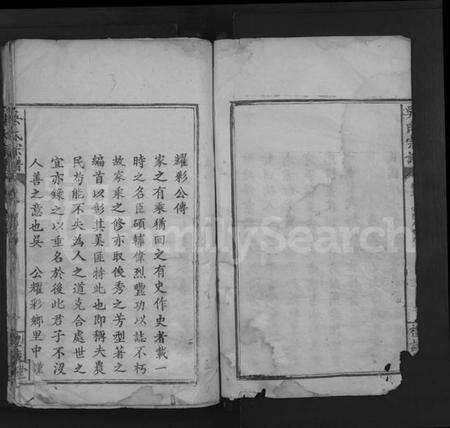 耀彩公傳
家之有乘猶國之有史作史者載一
時之名臣碩輔偉烈豐功以誌不朽
故家乘之修亦取俊秀之芳型著之
編首以彰其美匪特此也即耦夫農
民苟能不失為人之道克合處世之
宜亦錄之以垂名於後此君子不沒
人善之意也吳 公耀彩鄉里中謹
吳氏宗譜
FamilySearch